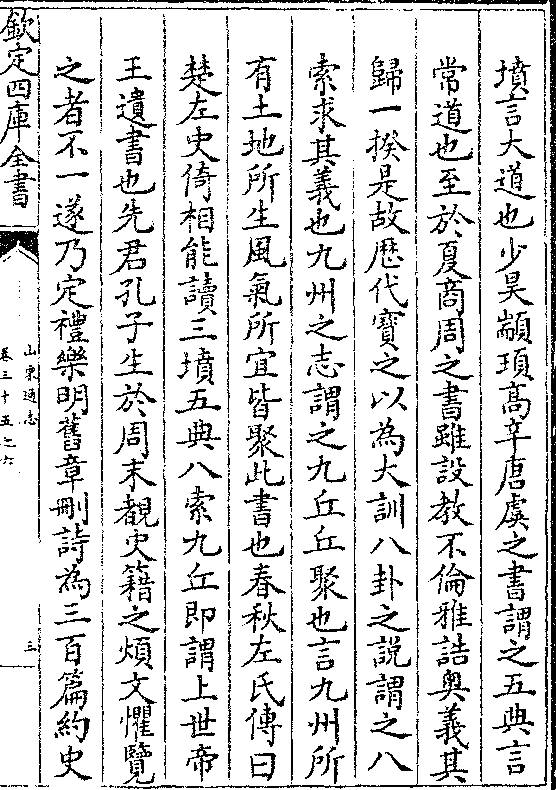 墳言大道也少昊顓頊髙辛唐虞之書謂之五典言
常道也至於夏商周之書雖設教不倫雅誥奥義其
歸一揆是故歴代寶之以為大訓八卦之説謂之八
索求其義也九州之志謂之九丘丘聚也言九州所
有土地所生風氣所宜皆聚此書也春秋左氏傳曰
楚左史倚相能讀三墳五典八索九丘即謂上世帝
王遺書也先君孔子生於周末覩史籍之煩文懼覽
之者不一遂乃定禮樂明舊章刪詩為三百篇約史
欽定四庫全書
山東通志
卷三十五之六
三